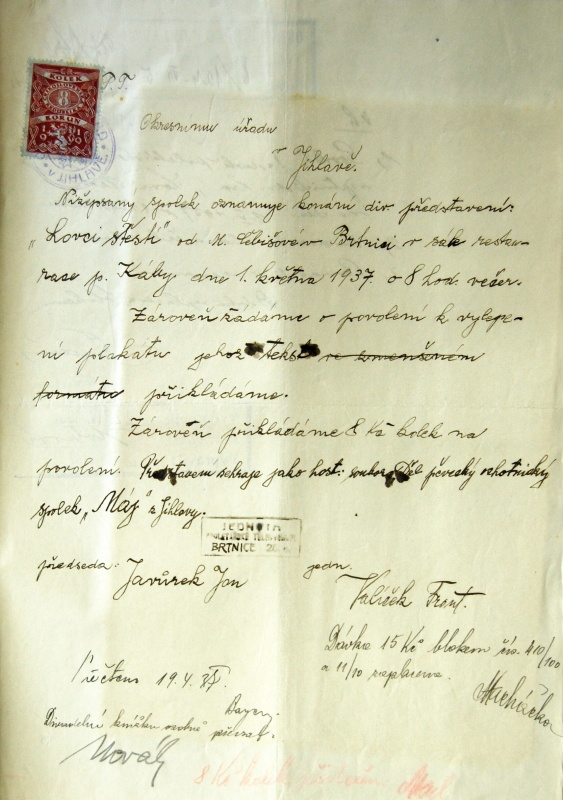 KOLEK
8
KORUN
V JIHLAVĚ
P. T.
Okresnímu úřadu
v Jihlavě.
Nížepsaný spolek oznamuje konání div. představení:
„Lovci štěstí" od M. v Brtnici v sále restau-
race p. Kálby dne 1. května 1937. o 8 hod. večer.
Zároveň žádáme o povolení k vylepe-
ní plakátu jehož tekst ve zmenšeném
formátu přikládáme.
Zároveň přikládáme 8 Kč kolek na
povolení. Představení sehraje jako host: soubor Děl pěvecký ochotnický
spolek „Máj" z Jihlavy.
JEDNOTA
BRTNICE
předseda: Javůrek Jan jedn.
Valíček Frant.
Dávka 15 Kč blokem čís. 410/100
a 11/10 zaplacena.
Macháčka
19.4.37.
Divadelní knížku osobně
Novák
8 Kč kolek